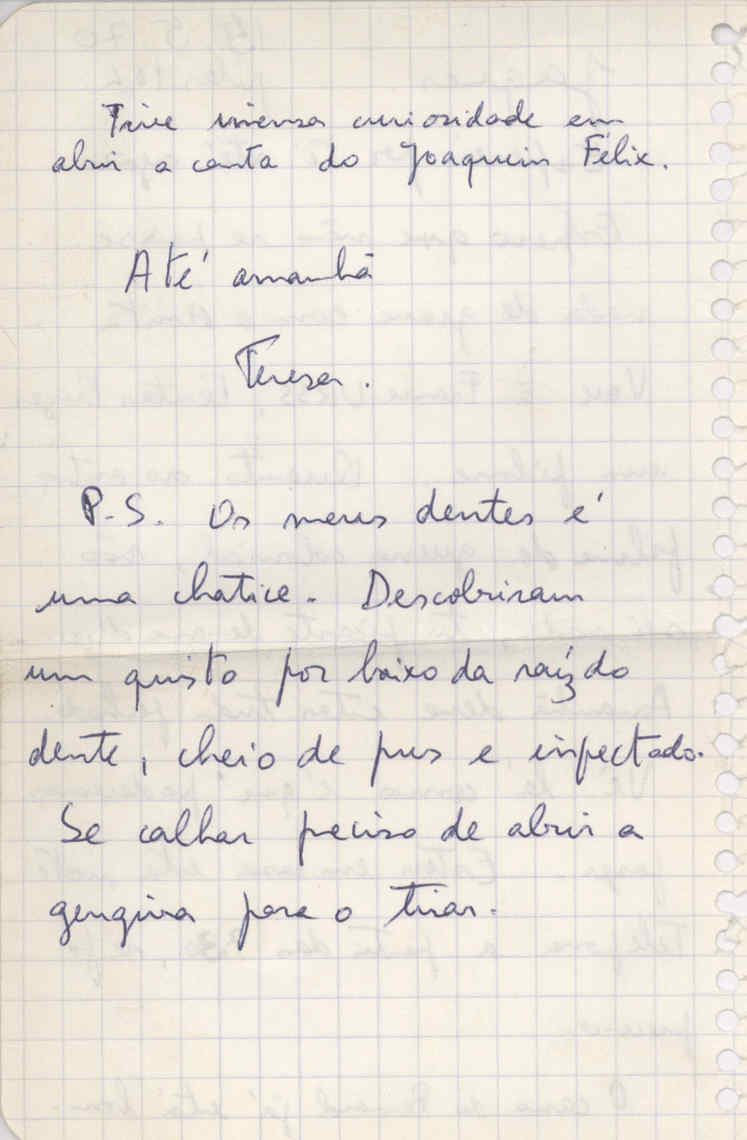 Tive imensa curiosidade em
abrir a carta do Joaquim Félix.
Até amanhã
Teresa.
P.S. Os meus dentes é
uma chatice. Descobriram
um quisto por baixo da raíz do
dente, cheio de pus e infectado.
Se calhar preciso de abrir a
gengiva para o tirar.